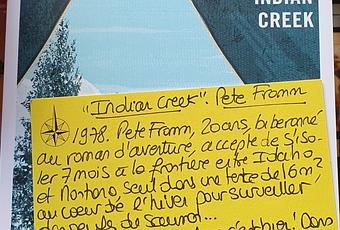 INDIAN
CREEK
"Indian Creek". Pete Fromm
1978. Pete Fromm, 20 ans, biberonné
au roman d'aventure, accepte de s'iso-
ler 7 mois à la frontière entre Idaho
et Montana seul dans une tente de 16m²,
au cœur de l'hiver pour surveiller
des œufs de saumon...
! Dans